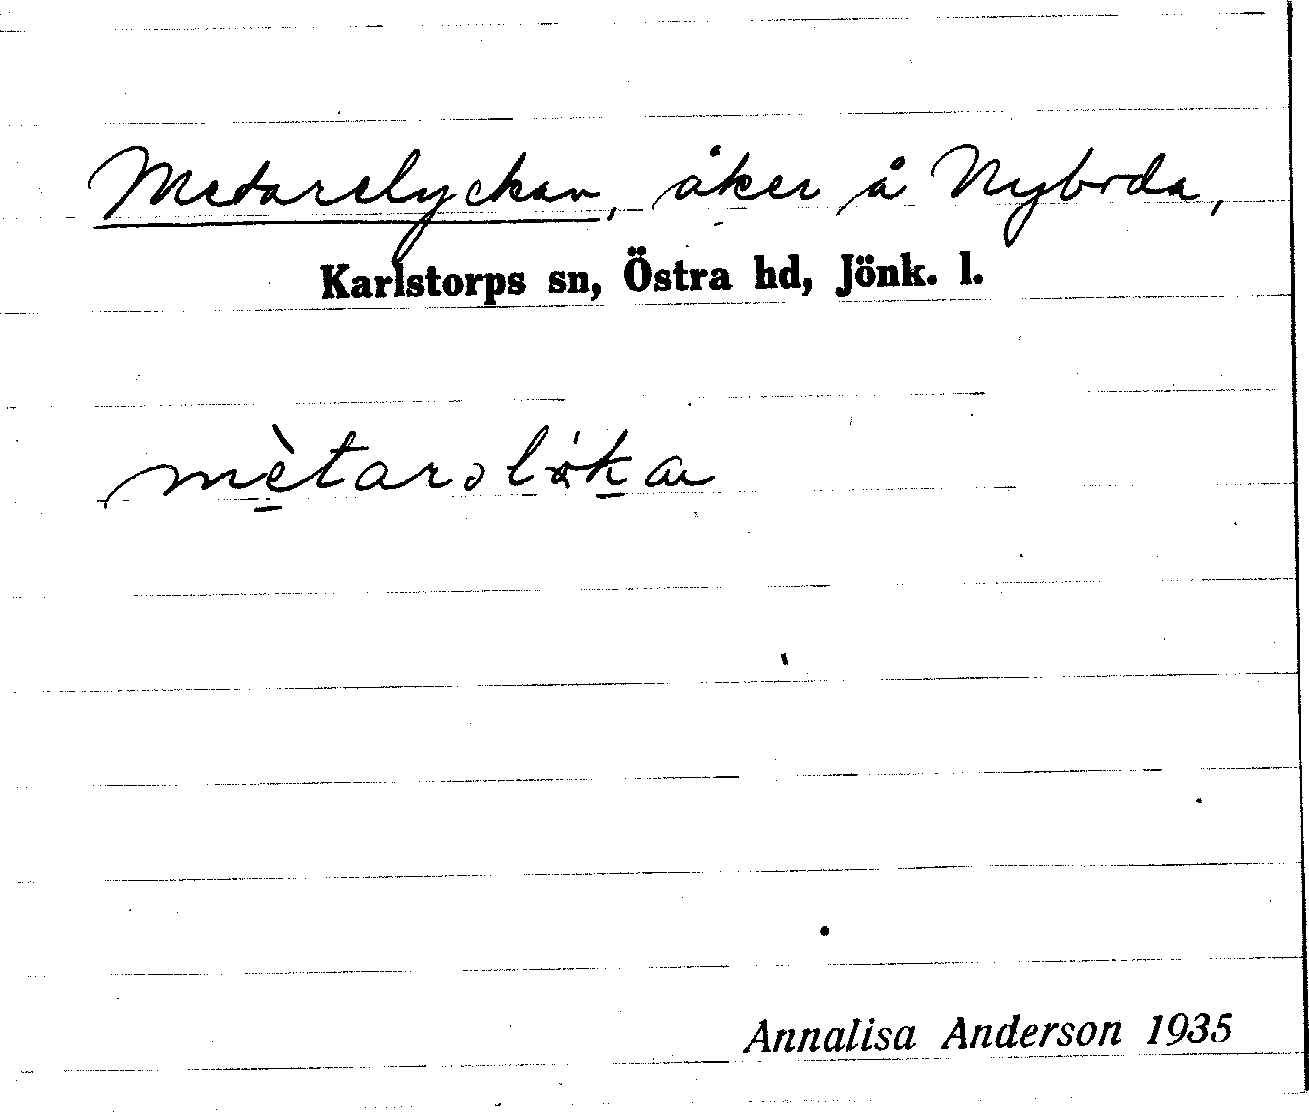 Metarelyckan, åker å Nyboda,
Karlstorps sn, Östra hd, Jönk. l.
Annalisa Anderson 1935